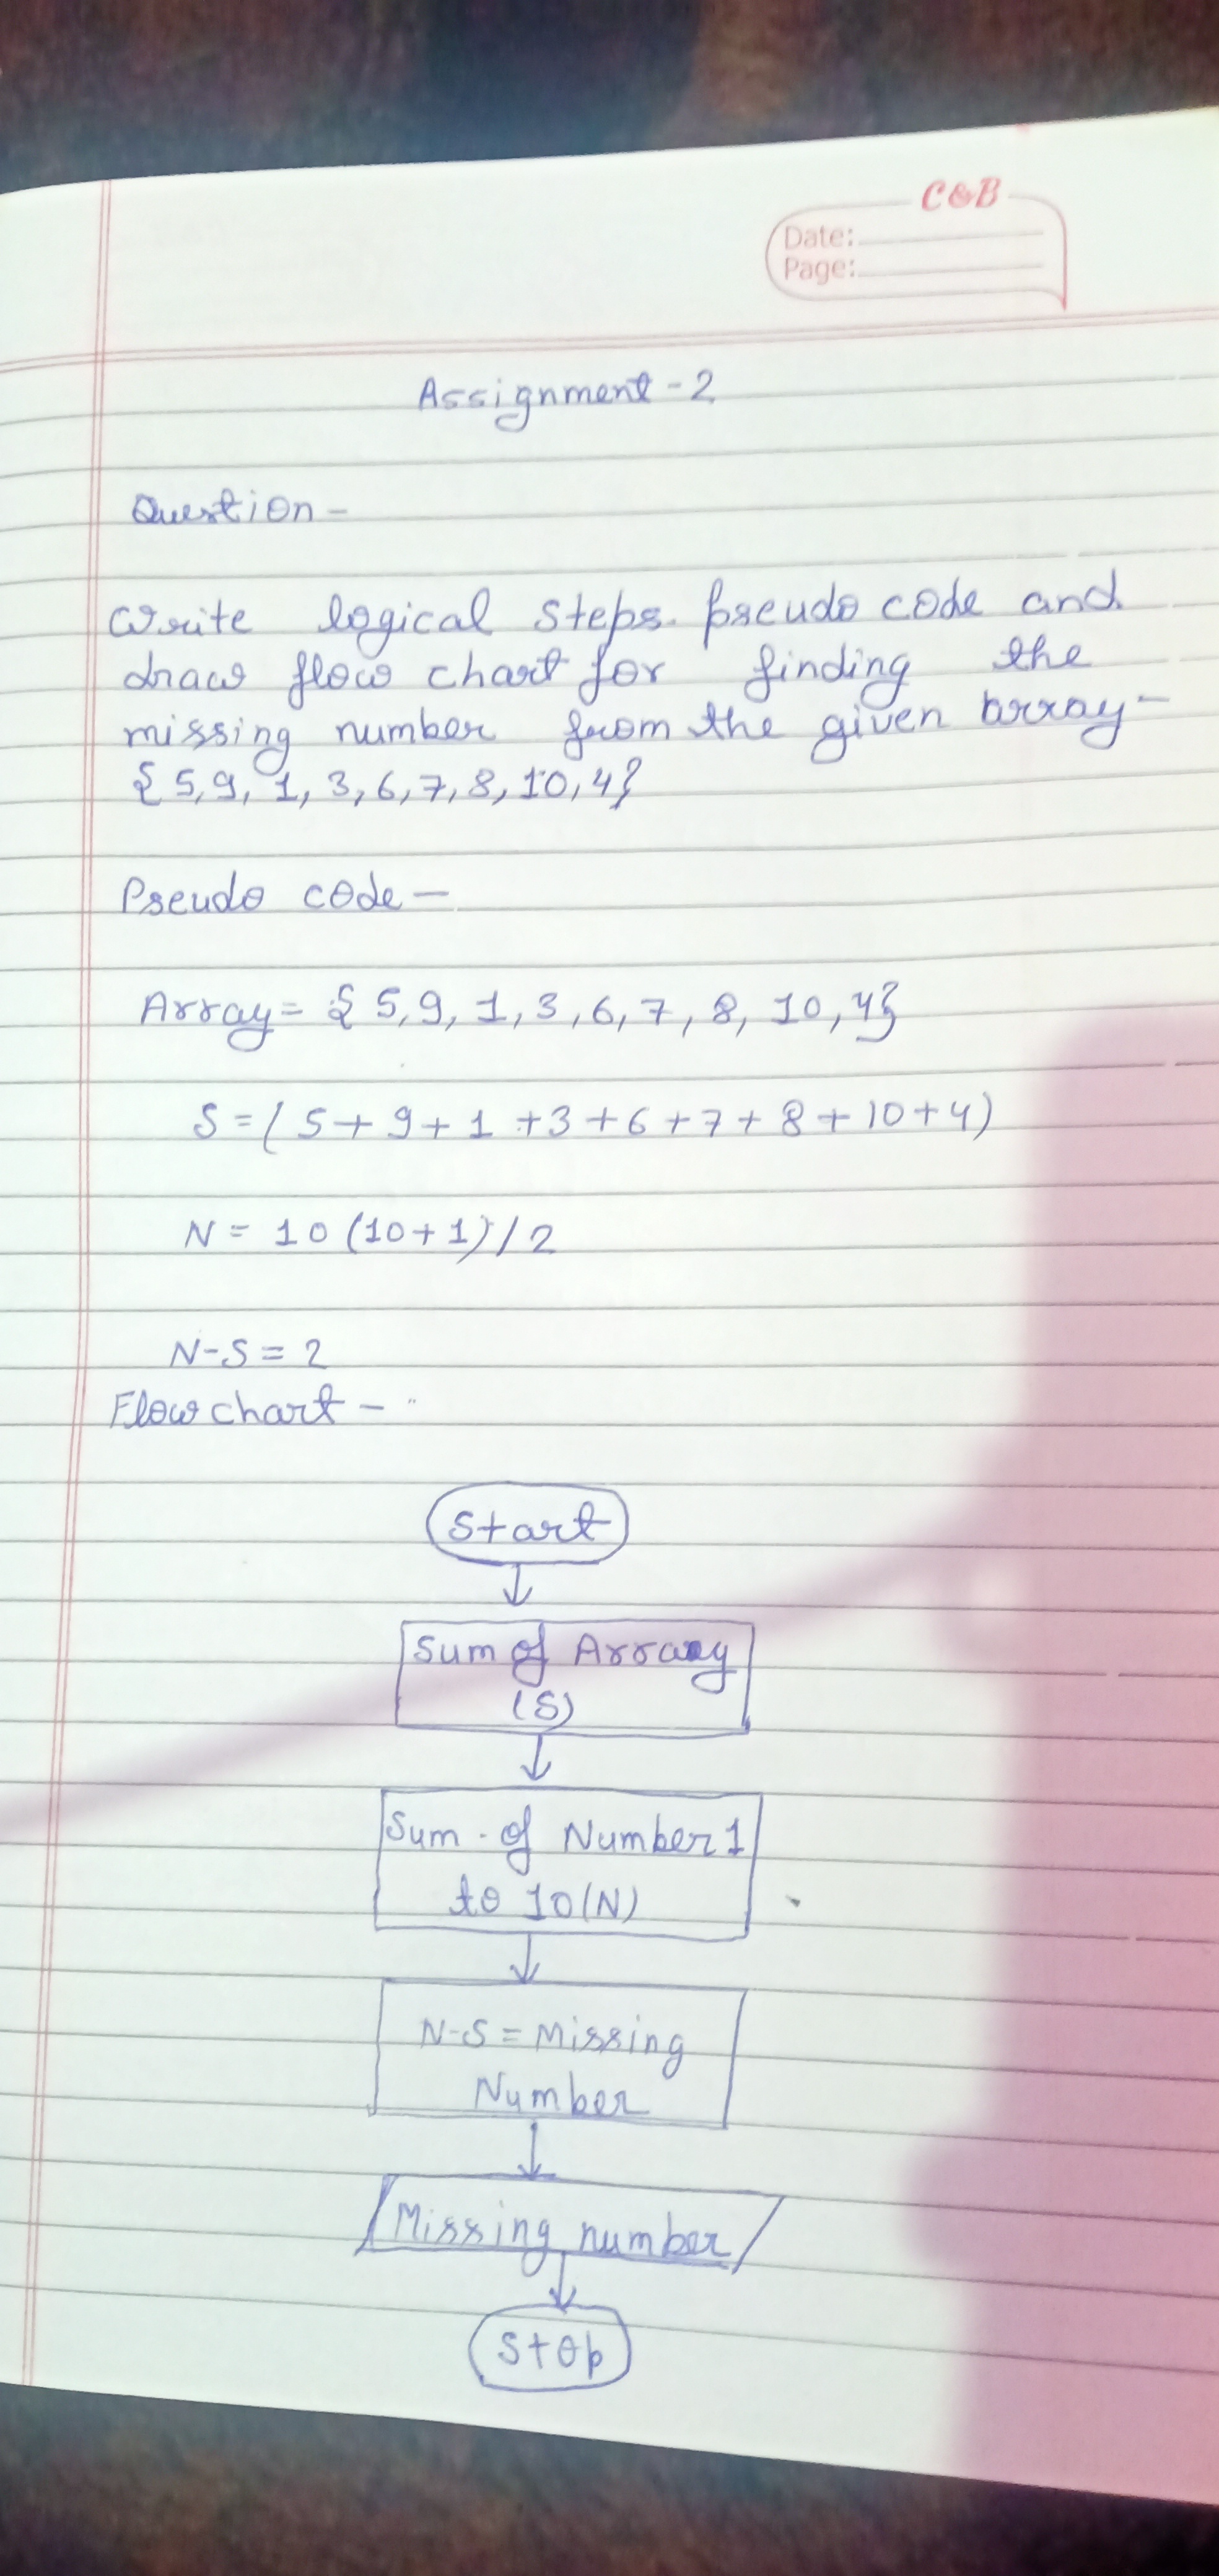 C&B
Date:
Page:
Assignment - 2
Question -
Write logical steps. pseudo code and
draw flow chart for finding the
missing number from the given array -
{ 5, 9, 1, 3, 6, 7, 8, 10, 4}
Pseudo code -
Array = { 5, 9, 1, 3, 6, 7, 8, 10, 4}
S = ( 5 + 9 + 1 + 3 + 6 + 7 + 8 + 10 + 4)
N = 10 (10 + 1) / 2
N - S = 2
Flow chart -
Start
Sum of Array
(S)
Sum of Number 1
to 10 (N)
N - S = Missing
Number
Missing number
Stop